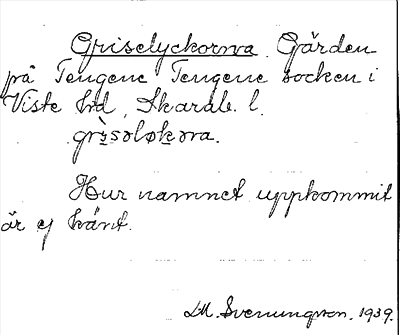 Griselyckorna. Gärden
på Tengene Tengene socken i
Viste hd, Skarab. l.
grìsəløkəna.
Hur namnet uppkommit
är ej känt.
M. Svenungson. 1939.